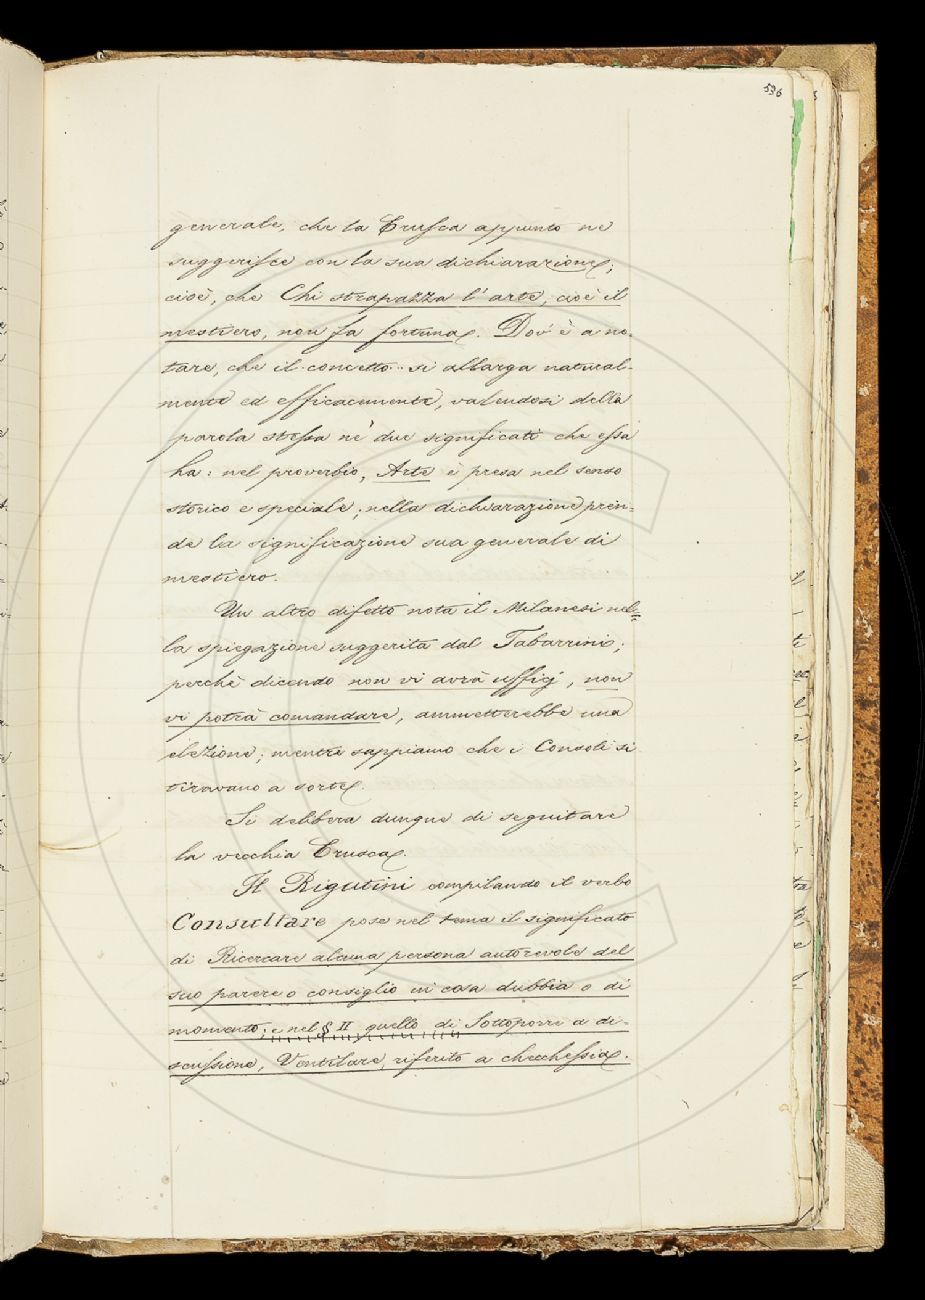 536
generale, che la Crusca appunto ne
suggerisce con la sua dichiarazione;
cioè, che Chi strapazza l'arte, cioè il
mestiero, non fa fortuna. Dov'è a no-
tare, che il concetto si allarga natural-
mente ed efficacemente, valendosi della
parola stessa ne' due significati che essa
ha: nel proverbio, Arte è presa nel senso
storico e speciale; nella dichiarazione pren-
de la significazione sua generale di
mestiero.
Un altro difetto nota il Milanesi nel-
la spiegazione suggerita dal Tabarrini;
perchè dicendo non vi avrà uffizj, non
vi potrà comandare, ammetterebbe una
elezione; mentre sappiamo che i Consoli si
tiravano a sorte.
Si delibera dunque di seguitare
la vecchia Crusca.
Il Rigutini compilando il verbo
Consultare pose nel tema il significato
di Ricercare alcuna persona autorevole del
suo parere o consiglio in cosa dubbia o di
momento; e nel § II quello di Sottoporre a di-
scussione, Ventilare, riferito a checchessia.